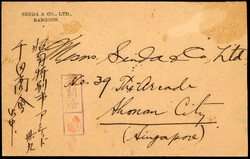 SENDA & CO., LTD.,
RANGOON.
Messrs. Senda & Co., Ltd.
No. 39 The Arcade
Shonan City
(Singapore)
昭南特別市アーケード
千田商会